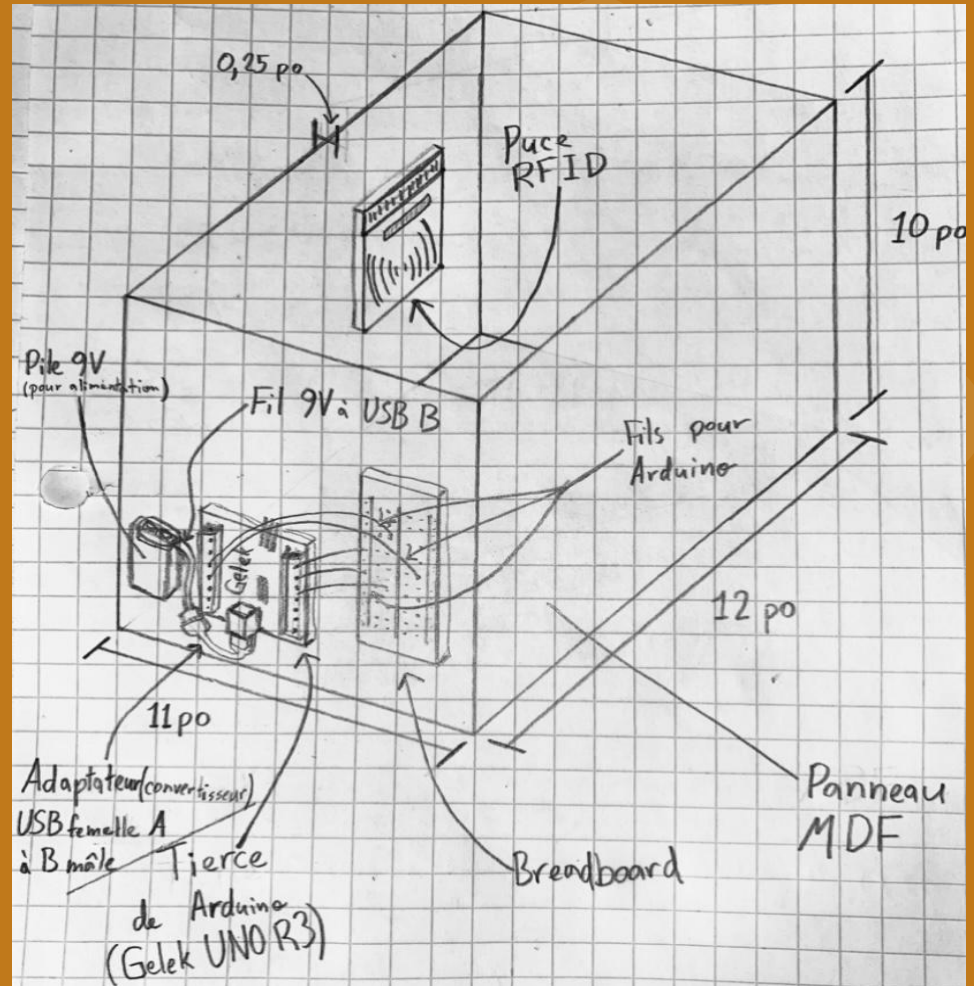 0,25 po
Puce
RFID
10 po
Pile 9V
(pour alimentation)
Fil 9V à USB B
Fils pour
Arduino
Gelek
12 po
11 po
Adaptateur (convertisseur)
USB femelle A
à B mâle
Tierce
de Arduino
(Gelek UNO R3)
Breadboard
Panneau
MDF